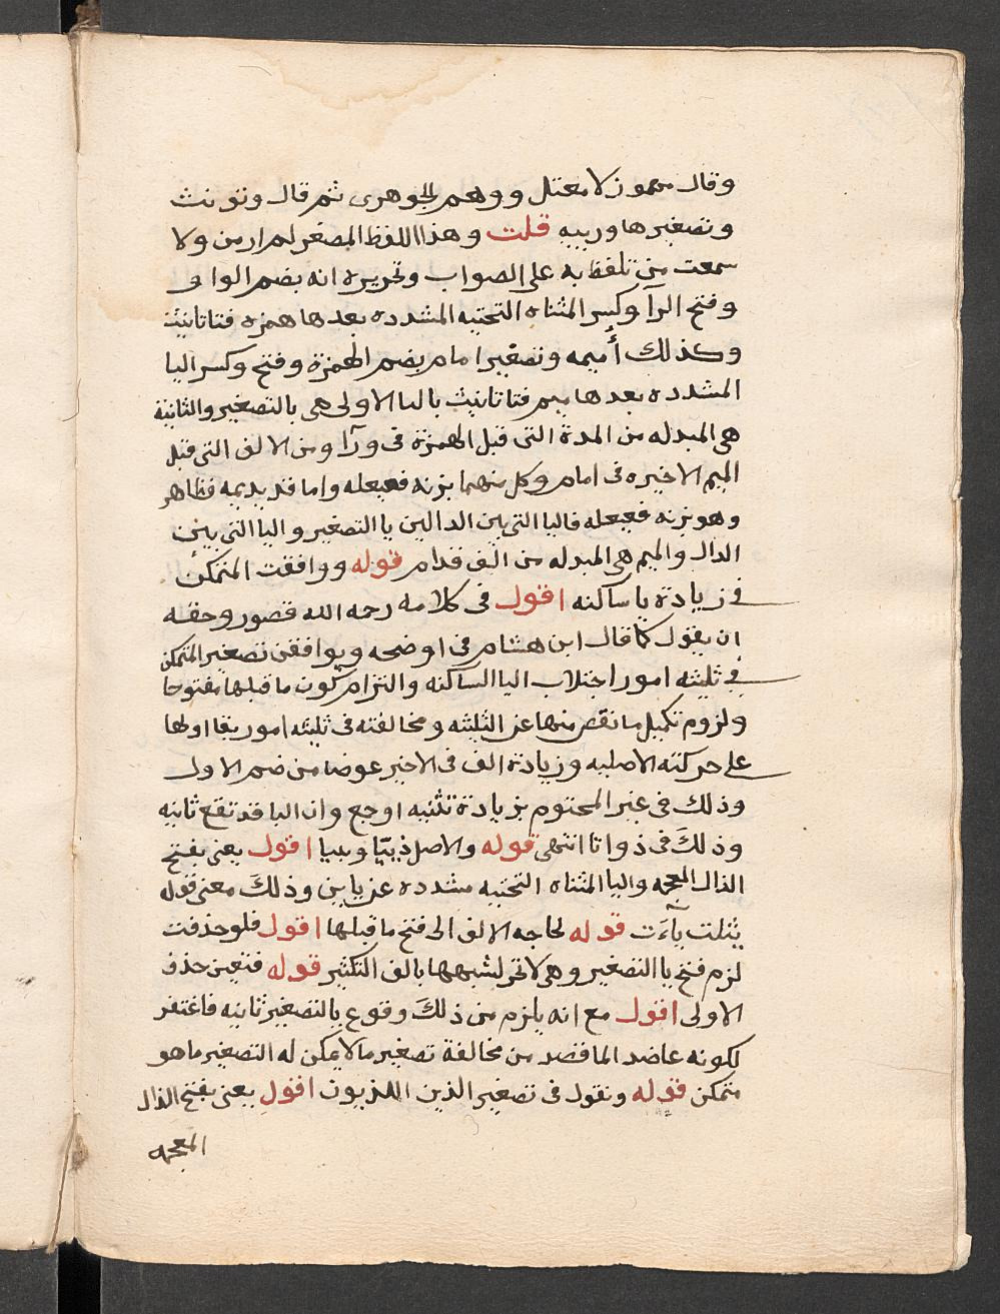 وقال مهموز لا معتل ووهم الجوهرى ثم قال وتونث
وتصغيرها وربيه قلت وهذا اللفظ المصغر لم ار من ولا
سمعت من تلفظ به على الصواب وتحريره انه بضم الواو
وفتح الرآ وكسر المثناه التحتيه المشدده بعدها همزه فتا تانيث
وكذلك أميمه وتصغير امام بضم الهمزة وفتح وكسر اليا
المشدده بعدها ميم فتا تانيث باليا الاولى هى يا التصغير والثانية
هى المبدله من المدة التى قبل الهمزة فى ورآ ومن الالف التى قبل
الميم الاخيره فى امام وكل منهما بزنه فعيعله واما قديديمه فظاهر
وهو بزنه فعيعله فاليا التى بين الدالين يا التصغير واليا التى بين
الدال والميم هى المبدله من الف قدام قوله ووافقت المتمكن
فى زيادة يا ساكنه اقول فى كلامه رحمه الله قصور وحقه
ان يقول كما قال ابن هشام فى اوضحه ويوافقن تصغير المتمكن
فى ثلثه امور اجتلاب اليا الساكنه والتزام كون ما قبلها مفتوحا
ولزوم تكميل ما نقص منها عن الثلثه ومخالفته فى ثلثه امور بقا اولها
على حركته الاصليه وزيادة الف فى الاخير عوضا من ضم الاول
وذلك فى غير المختوم بزيادة تثنيه او جمع وان اليا قد تقع ثانيه
وذلك فى ذا وتا انتهى قوله والاصل ذييّا وتييا اقول يعنى بفتح
الذال المعجمه واليا المثناه التحتيه مشدده عن يا ين وذلك معنى قوله
بثلث ياءَت قوله لحاجه الالف الى فتح ما قبلها اقول فلو حذفت
لزم فتح يا التصغير وهى لا تحرك لشبهها بالف التكثير قوله فتعين حذف
الاولى اقول مع انه يلزم من ذلك وقوع يا التصغير ثانيه فاغتفر
لكونه عاضد الما قصد من مخالفة تصغير ما لا يمكن له التصغير ما هو
متمكن قوله ونقول فى تصغير الذين اللذيون اقول يعنى بفتح الذال
المعجمه